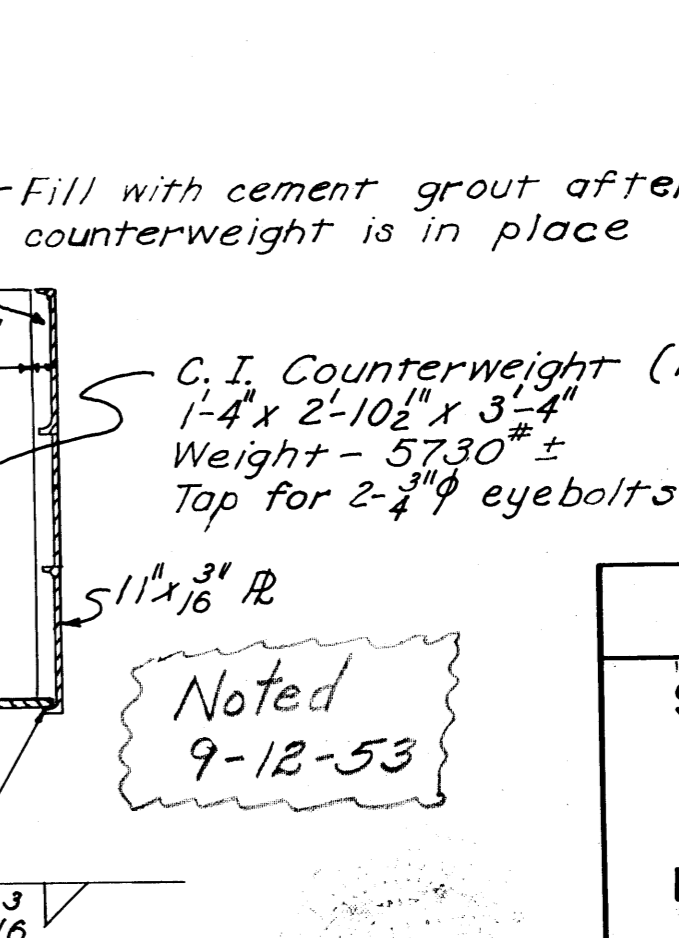 Fill with cement grout after
counterweight is in place
C. I. Counterweight (
1'-4" x 2'-10½" x 3'-4"
Weight - 5730# ±
Tap for 2-¾"ϕ eyebolts
11" x 3/16" ℙL
Noted
9-12-53
3
16